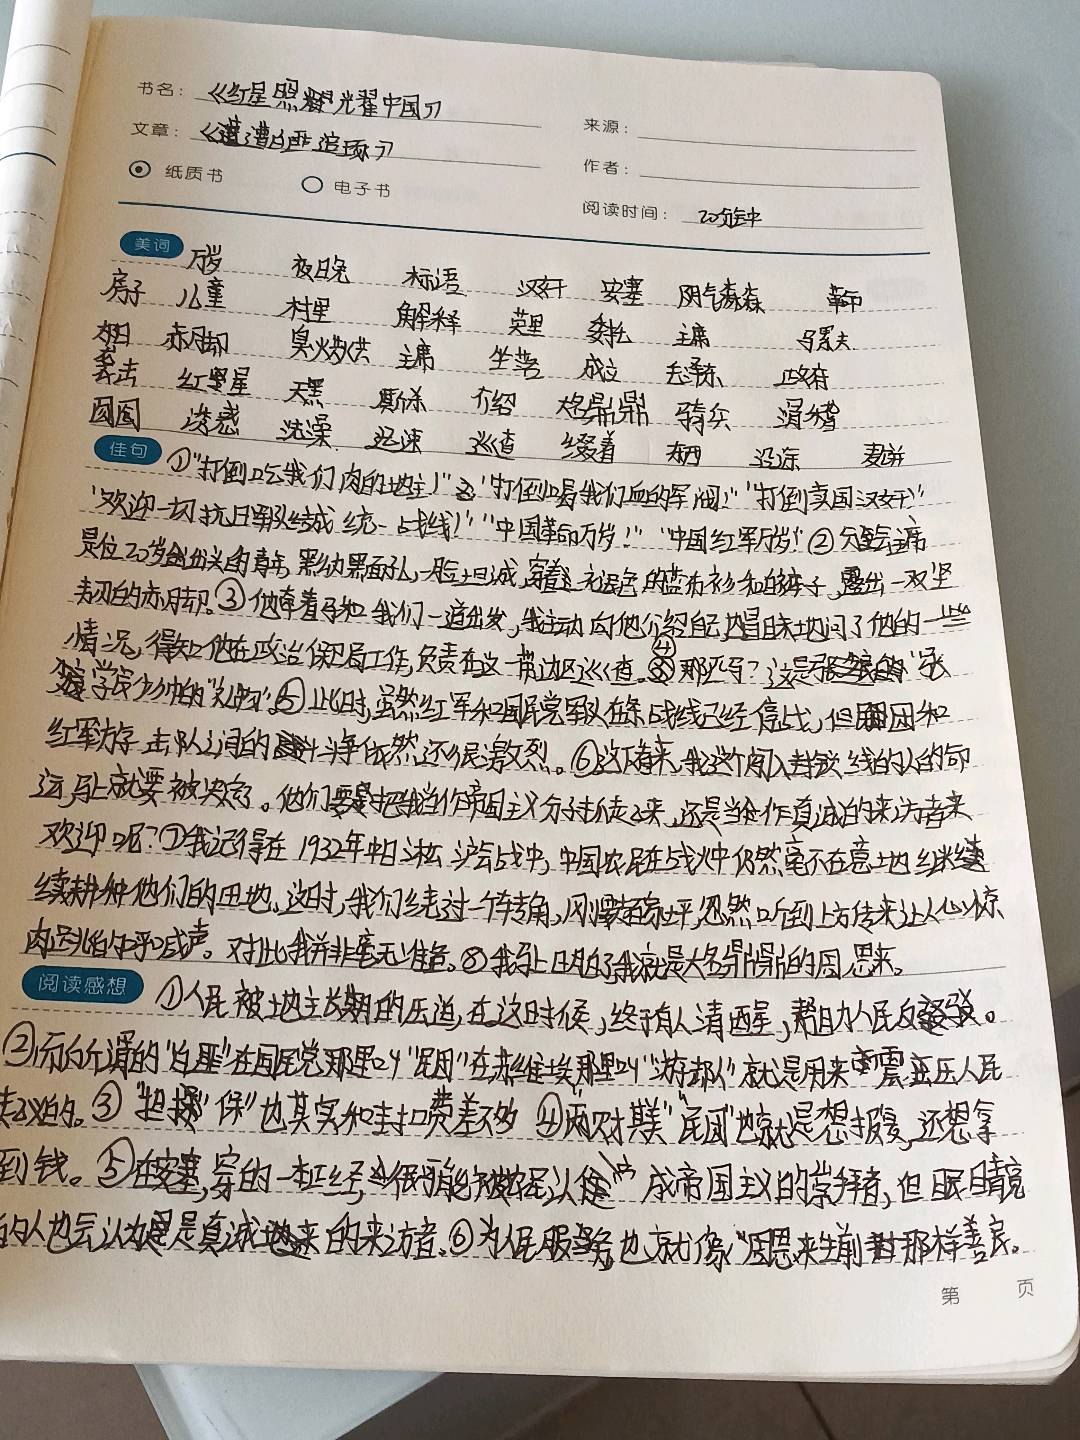 书名： 《红星照耀光耀中国》
来源：
文章： 《遭遭白匪追琢》
作者：
纸质书 电子书
阅读时间： 20分钟
美词 万岁 夜晚 标语 汉奸 安塞 阴气森森 革命
房子 儿童 村里 解释 英里 委托 主席 马累夫
赤脚 臭烘烘 主席 坐落 成立 毛泽东 政府
袭击 红星 天黑 厮杀 介绍 大名鼎鼎 骑兵 滑稽
圆圆 洗澡 迅速 巡查 缀着 东西 麦饼
佳句 ①"打倒吃我们肉的地主！" "打倒喝我们血的军阀！" "打倒卖国汉奸！"
"欢迎一切抗日军队结成统一战线！" "中国革命万岁！" "中国红军万岁！②分会主席
是位20岁出头的青年，黑红面孔，一脸坦诚，穿着褪色的蓝布衫和白裤子，露出一双坚
韧的赤脚。③他牵着马和我们一道出发，我主动向他介绍自己，冒昧地问了他的一些
情况，得知他在政治保卫局工作，负责在这一带边区巡查。④那匹马？这是张学良的"
"礼物"。⑤此时，虽然红军和国民党军队在东战线已经停战，但民团和
红军游击队之间的斗争依然还很激烈。⑥这下看来，我这个闯入封锁线的人的命
运，马上就要被决定了。他们要是把我当作帝国主义分子抓起来，还是当作真诚的来访者来
欢迎呢？⑦我记得在1932年中日淞沪会战中，中国农民在战火中仍然毫不在意地继续
续耕种他们的田地。这时，我们绕过一个转角，刚要走下土坪，忽然听到上方传来让人心惊
肉跳的呼喊声。对此我并非毫无准备。⑧我马上明白了我就是大名鼎鼎的周恩来。
阅读感想 ①人民被地主长期的压迫，在这时候，终于有人清醒，帮助人民反驳。
②而所谓的"白匪"在国民党那里叫"民团"在苏维埃那里叫"游击队"就是用来镇压人民
起义的。③"担 保"也其实和封口费差不多 ④两次 "民团"也就是想报复，还想拿
到钱。⑤在安塞，穿的一 被农民认 成帝国主义的崇拜者，但眼睛亮
的人也会认为是真诚地来的来访者。⑥为人民服务，也就像"周恩来生前 那样善良。
第 页